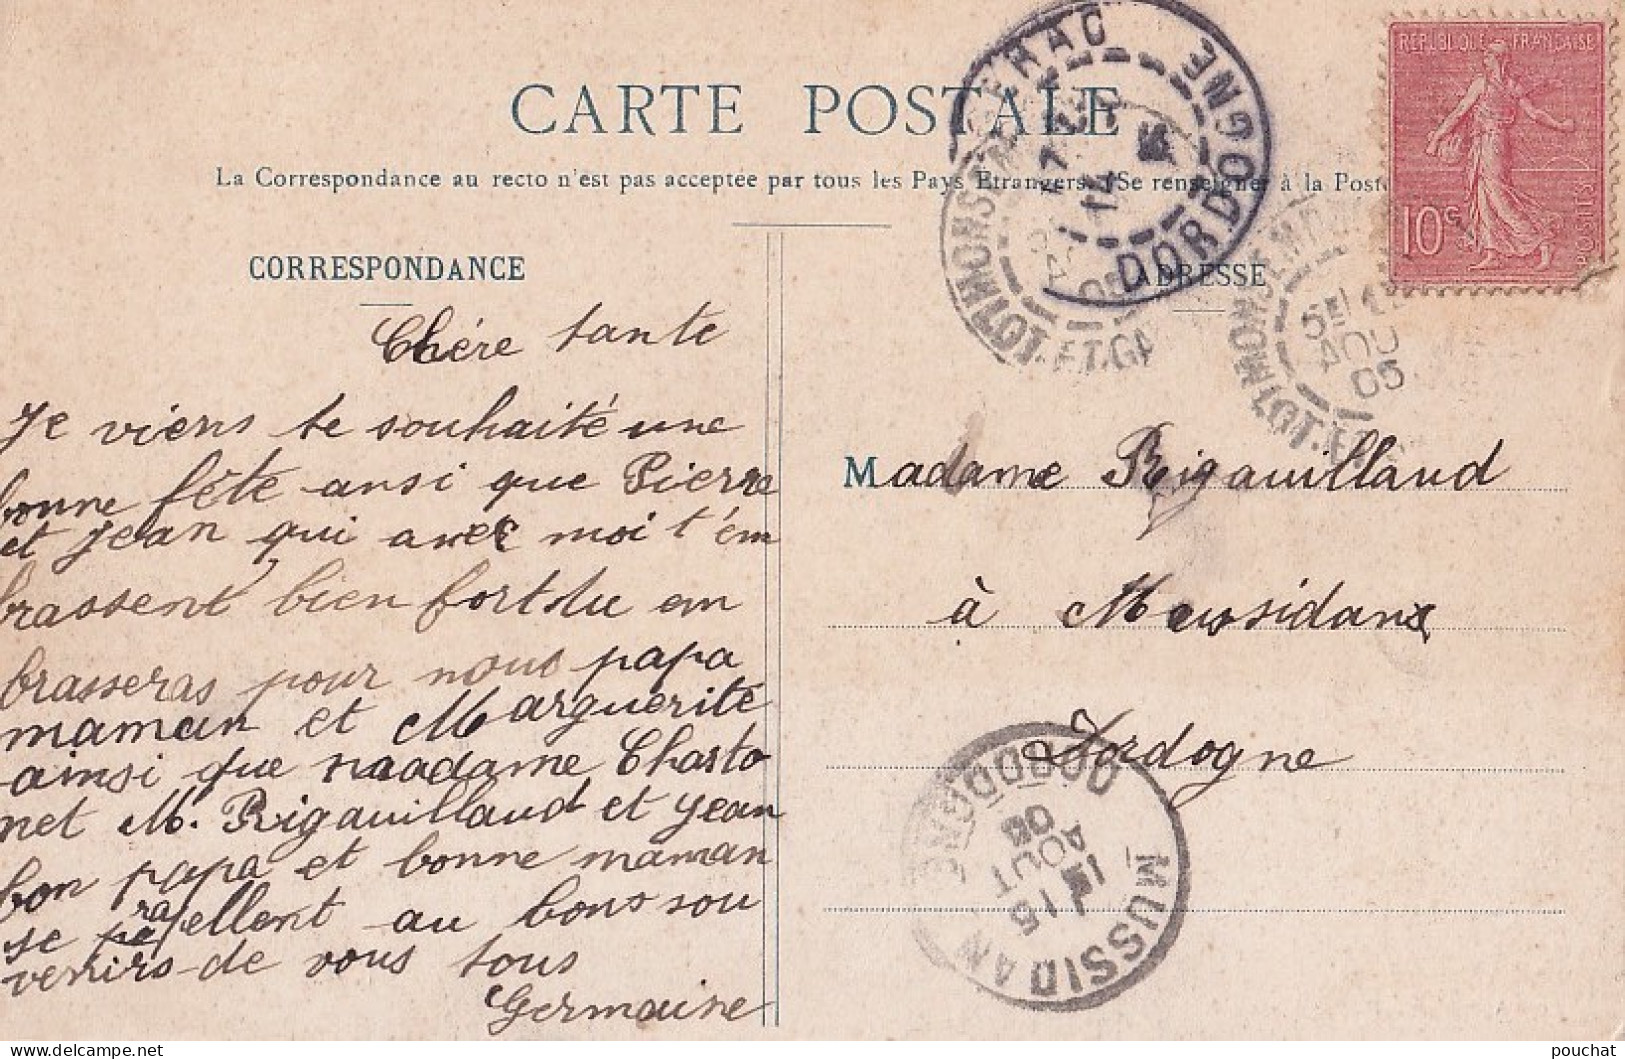 CARTE POSTALE
La Correspondance au recto n'est pas acceptée par tous les Pays Etrangers. (Se renseigner à la Poste
CORRESPONDANCE
ADRESSE
REPUBLIQUE FRANÇAISE
10c
POSTES
DORDOGNE
LOT-ET-GA
05
Chère tante
Je viens te souhaité une
bonne fête ansi que Pierre
et Jean qui avec moi t'em
brassent bien fort tu em
brasseras pour nous papa
maman et Marguerite
ainsi que madame Chasto
net M. Rigauilland et Jean
bon papa et bonne maman
se rapellent au bons sou
venirs de vous tous
Germaine
Madame Rigauilland
à Mussidan
Dordogne
MUSSIDAN
DORDOGNE
15
AOUT
05
pouchat